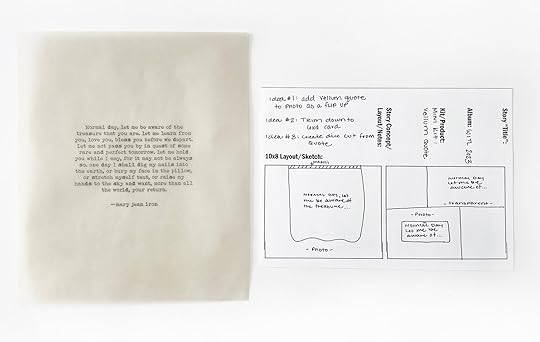 Normal day, let me be aware of the
treasure that you are. let me learn from
you, love you, bless you before we depart.
let me not pass you by in quest of some
rare and perfect tomorrow. let me hold
you while I may, for it may not be always
so. one day I shall dig my nails into
the earth, or bury my face in the pillow,
or stretch myself taut, or raise my
hands to the sky and want, more than all
the world, your return.
—mary jean iron
Idea #1: add vellum quote
to photo as a flip up
Idea #2: Trim down to
4x3 card
Idea #3: create die cut from
quote
10x8 Layout/Sketch:
Normal day, let
me be aware of
the treasure...
- Photo -
Story Concept/
Layout/Notes:
Kit/Product:
Mini Kit -
Vellum Quote
Album: WITL 2023
Story "Title":
Normal Day
let me be
aware of...
- transparent -
- Photo -
Normal Day
Let me be
aware of...